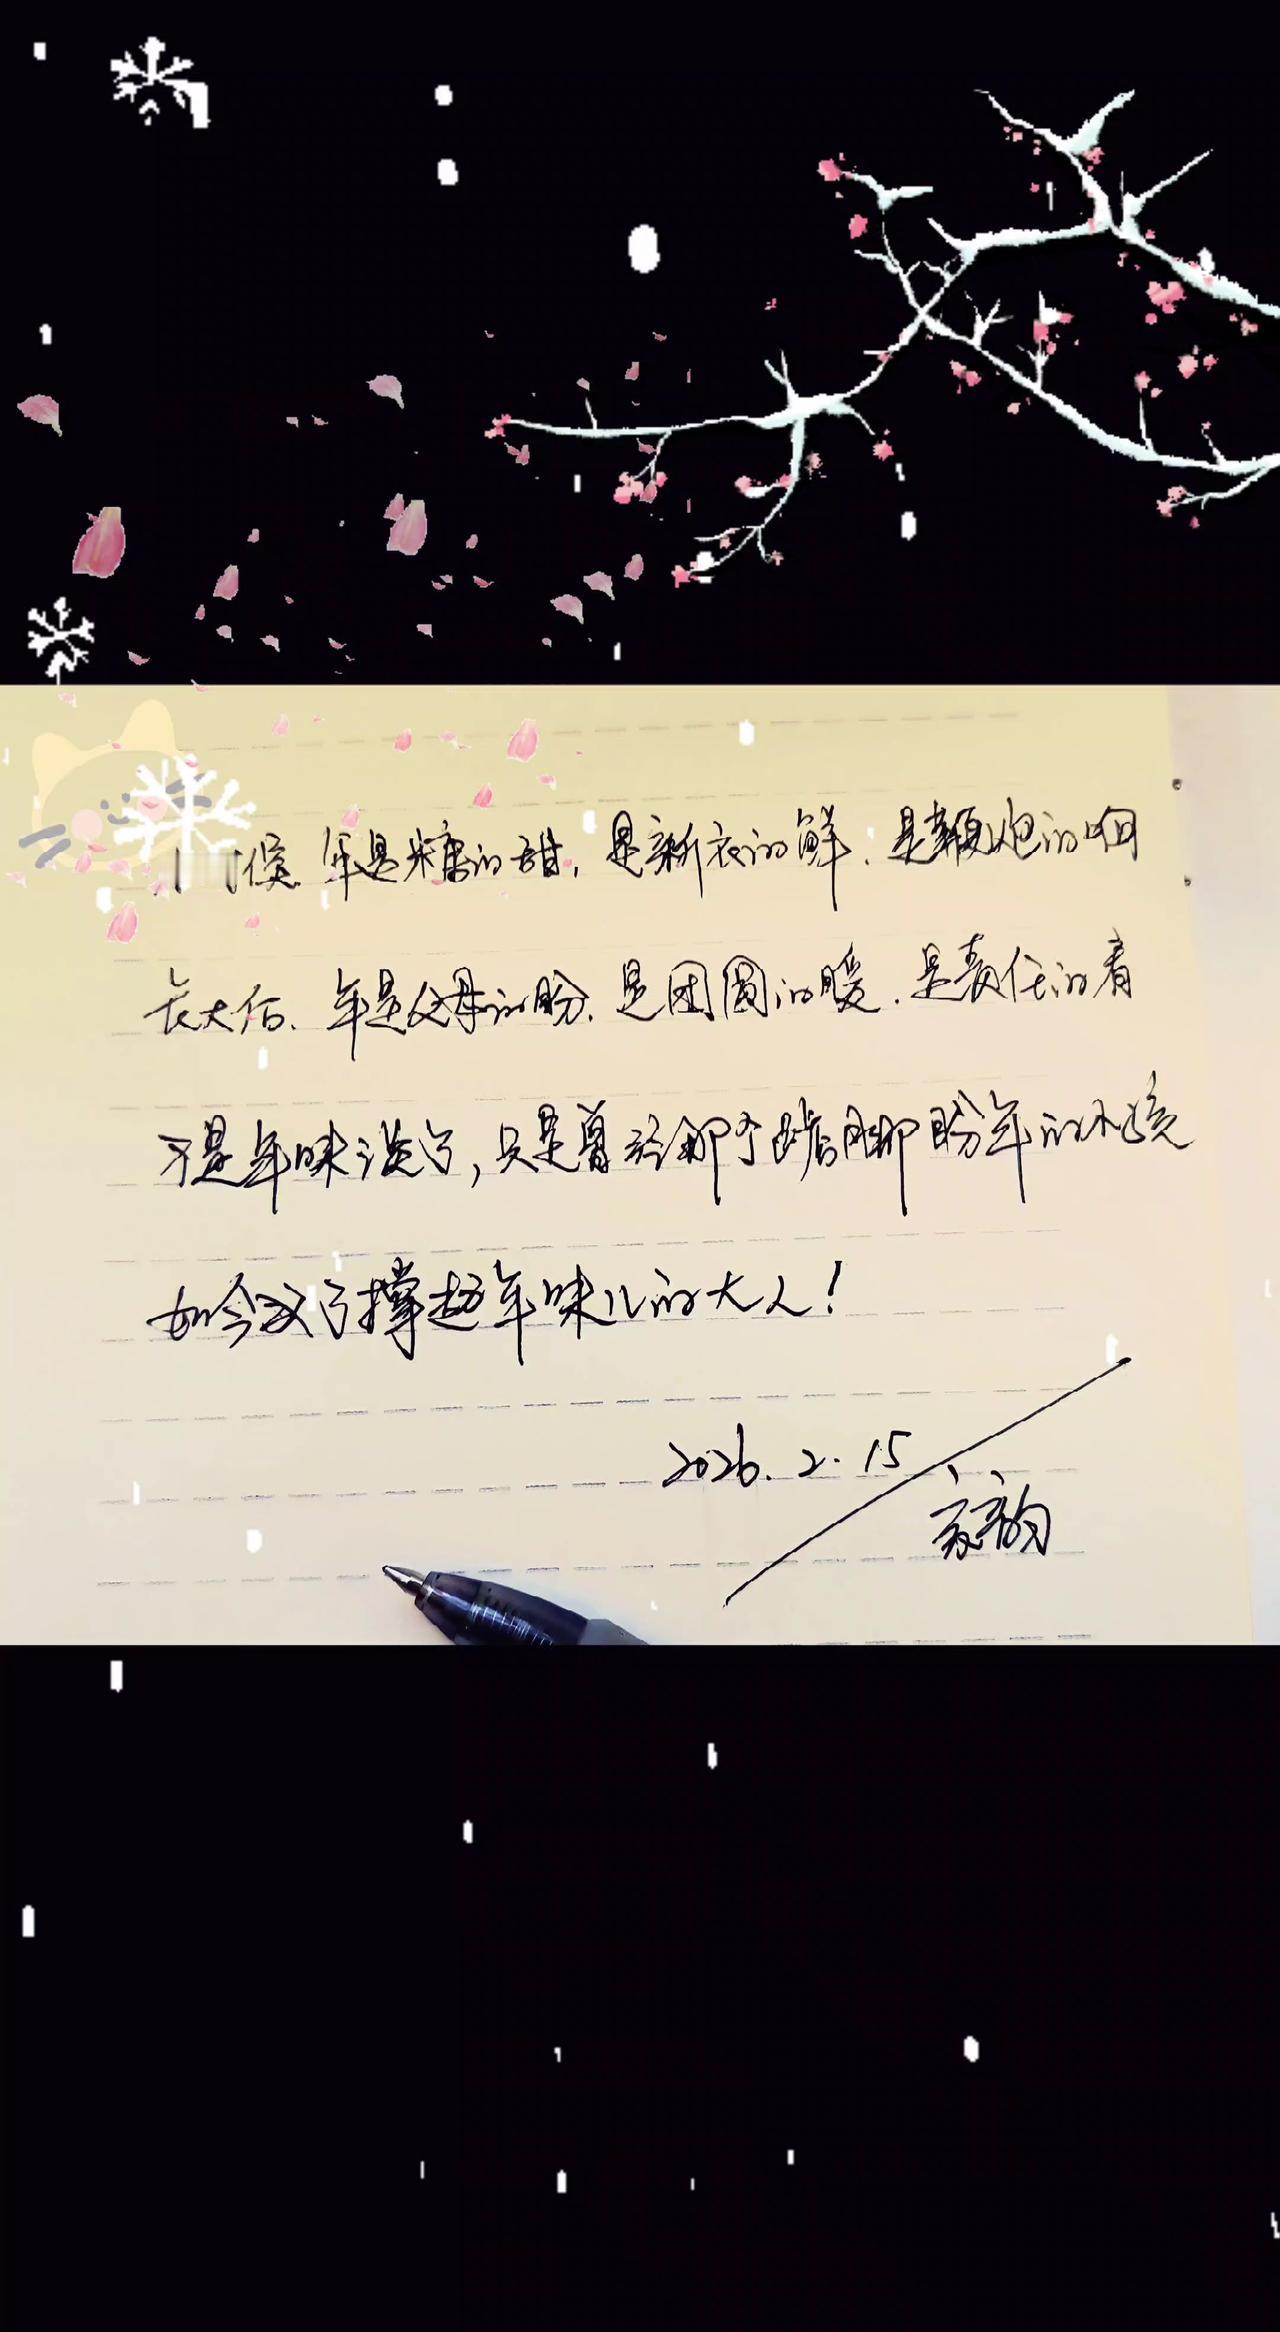 小时候,年是糖的甜,是新衣的鲜,是鞭炮的响
长大后,年是父母的盼,是团圆的暖,是责任的肩
不是年味淡了,只是曾经那个踮脚盼年的小孩
如今成了撑起年味儿的大人!
2026.2.15